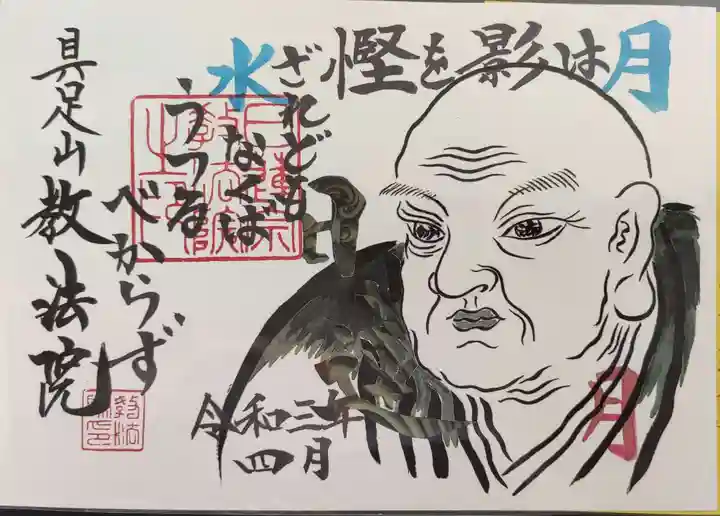 月は影を慳
ざれども
水なくば
うつる
べからず
具足山教法院
令和三年
四月
月